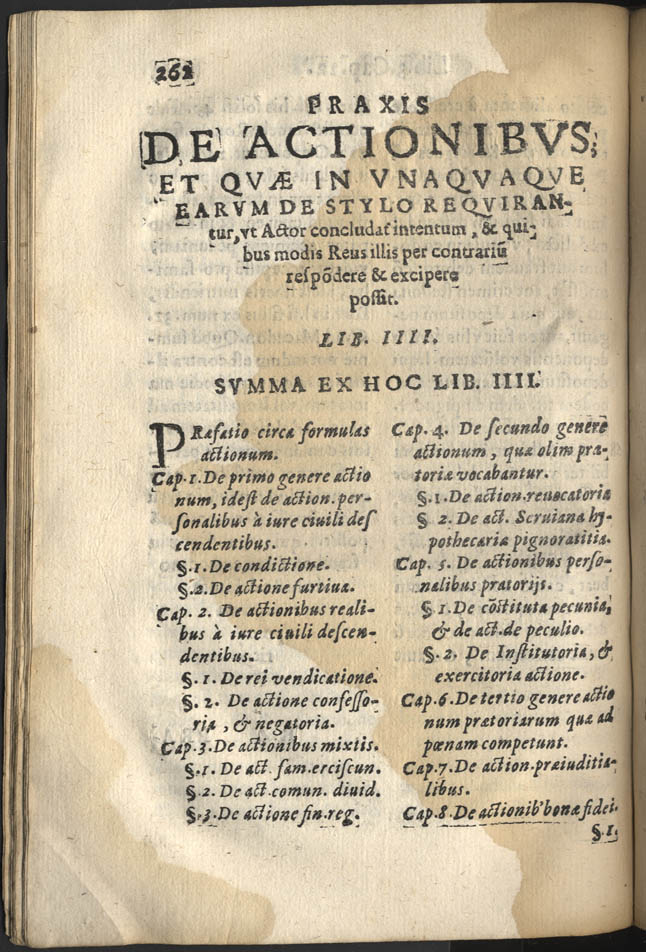 262
PRAXIS
DE ACTIONIBVS,
ET QVÆ IN VNAQVAQVE
EARVM DE STYLO REQVIRAN-
tur, vt Actor concludat intentum, & qui-
bus modis Reus illis per contrariũ
respõdere & excipere
possit.
LIB. IIII.
SVMMA EX HOC LIB. IIII.
PRæfatio circa formulas
actionum.
Cap. 1. De primo genere actio
num, idest de action. per-
sonalibus à iure ciuili des
cendentibus.
§. 1. De condictione.
§. 2. De actione furtiua.
Cap. 2. De actionibus reali-
bus à iure ciuili descen-
dentibus.
§. 1. De rei vendicatione.
§. 2. De actione confesso-
ria, & negatoria.
Cap. 3. De actionibus mixtis.
§. 1. De act. fam. erciscun.
§. 2. De act. comun. diuid.
§. 3. De actione fin. reg.
Cap. 4. De secundo genere
actionum, quæ olim præ-
toriæ vocabantur.
§. 1. De action. reuocatoria
§ 2. De act. Scruiana hy-
pothecaria pignoratitia.
Cap. 5. De actionibus perso-
nalibus prætorijs.
§ 1. De cõstituta pecunia,
& de act. de peculio.
§. 2. De Institutoria, &
exercitoria actione.
Cap. 6. De tertio genere actio
num prætoriarum quæ ad
pœnam competunt.
Cap. 7. De action. præiuditia-
libus.
Cap. 8. De actionib' bonæ fidei.
§. 1.